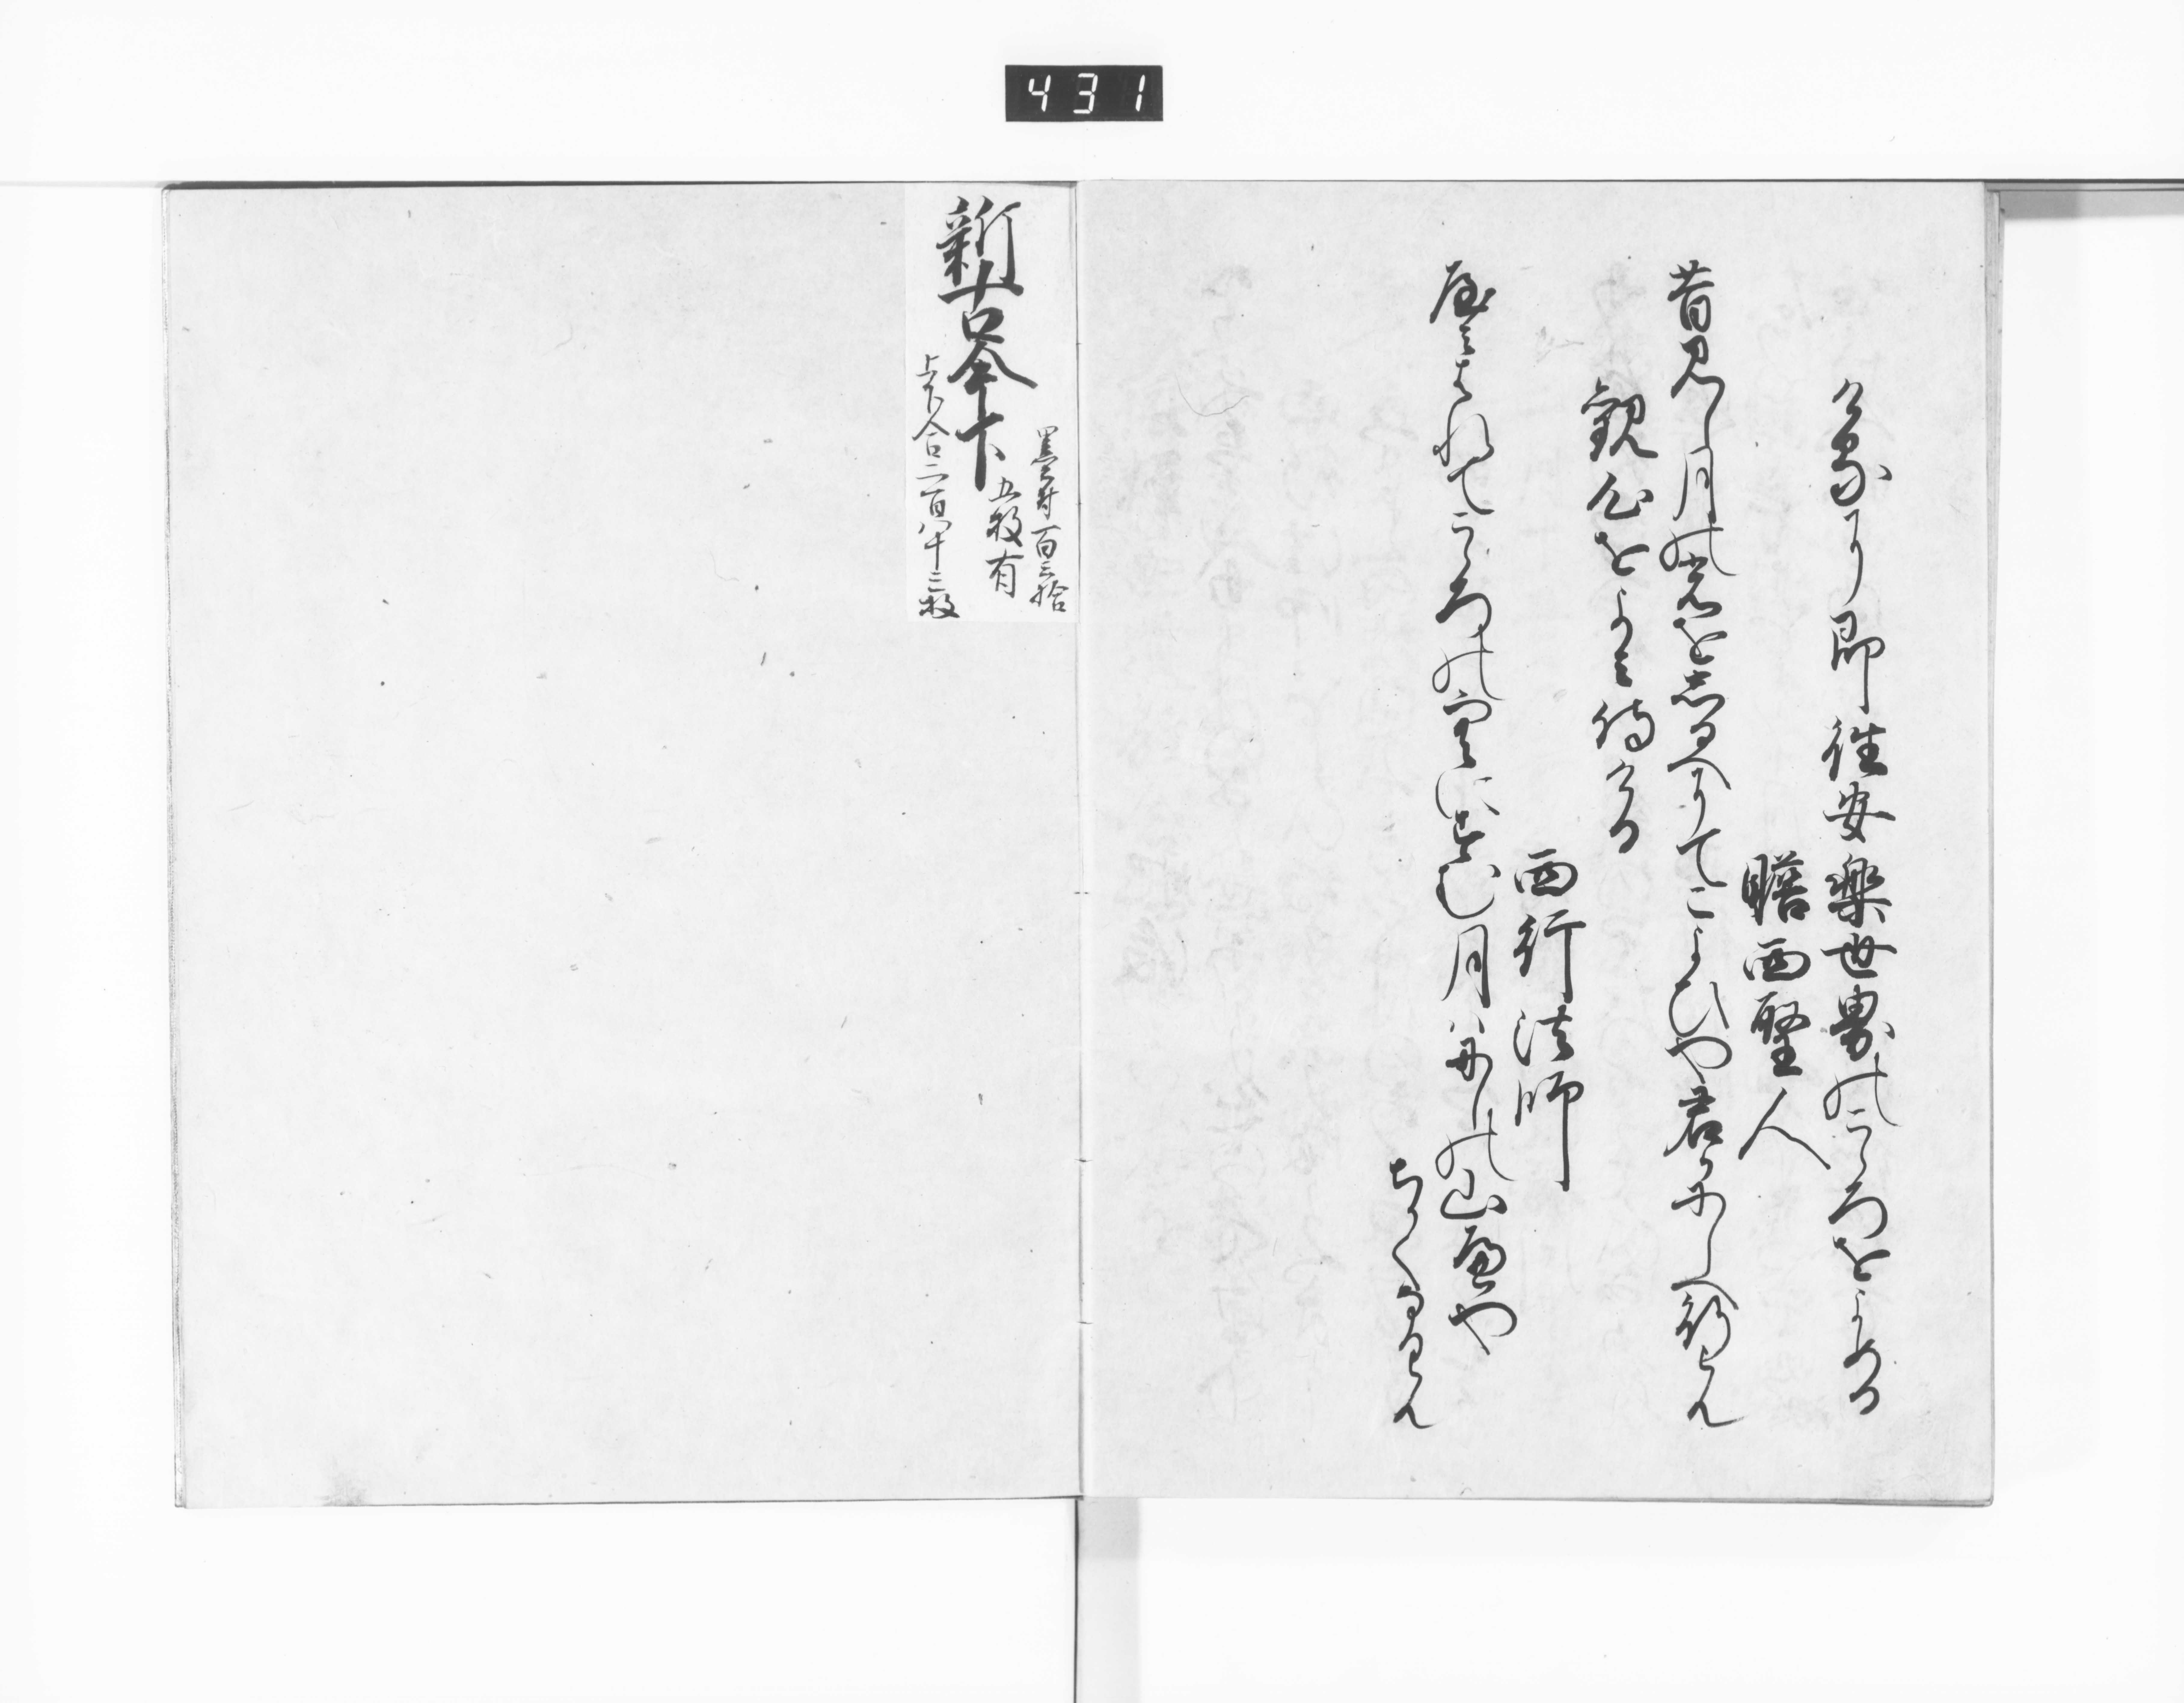 431
ける に即往安楽世界のこゝろをよめる
瞻西聖人
昔見し月の光をしるへにてこよひや君かにしへ行らん
観心をよみ侍ける
西行法師
やみはれてこゝろの空にすむ月はにしの山邊や
ちかくなるらん
新古今下
墨付百三拾
五枚有
上下合二百八十三枚